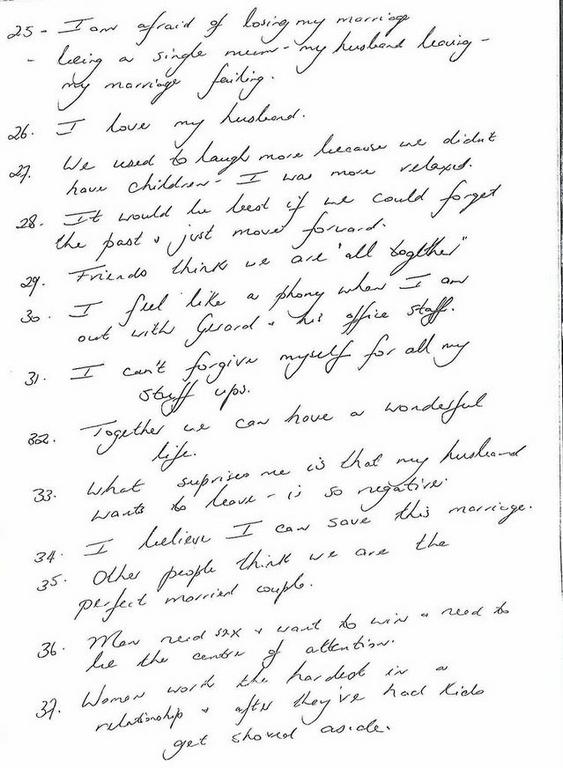 25 - I am afraid of losing my marriage
- being a single mum - my husband leaving -
my marriage failing.
26. I love my husband.
27. We used to laugh more because we didn't
have children - I was more relaxed.
28. It would be best if we could forget
the past & just move forward.
29. Friends think we are "all together"
30. I feel like a phony when I am
out with Gerard & his office staff.
31. I can't forgive myself for all my
stuff ups.
32. Together we can have a wonderful
life.
33. What suprises me is that my husband
wants to leave - is so negative.
34. I believe I can save this marriage.
35. Other people think we are the
perfect married couple.
36. Men need sex & want to win & need to
be the centre of attention.
37. Women work the hardest in a
relationship & after they've had kids
get shoved aside.